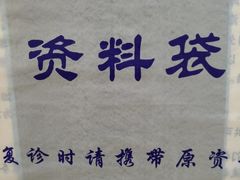 资料袋
复诊时请携带原资